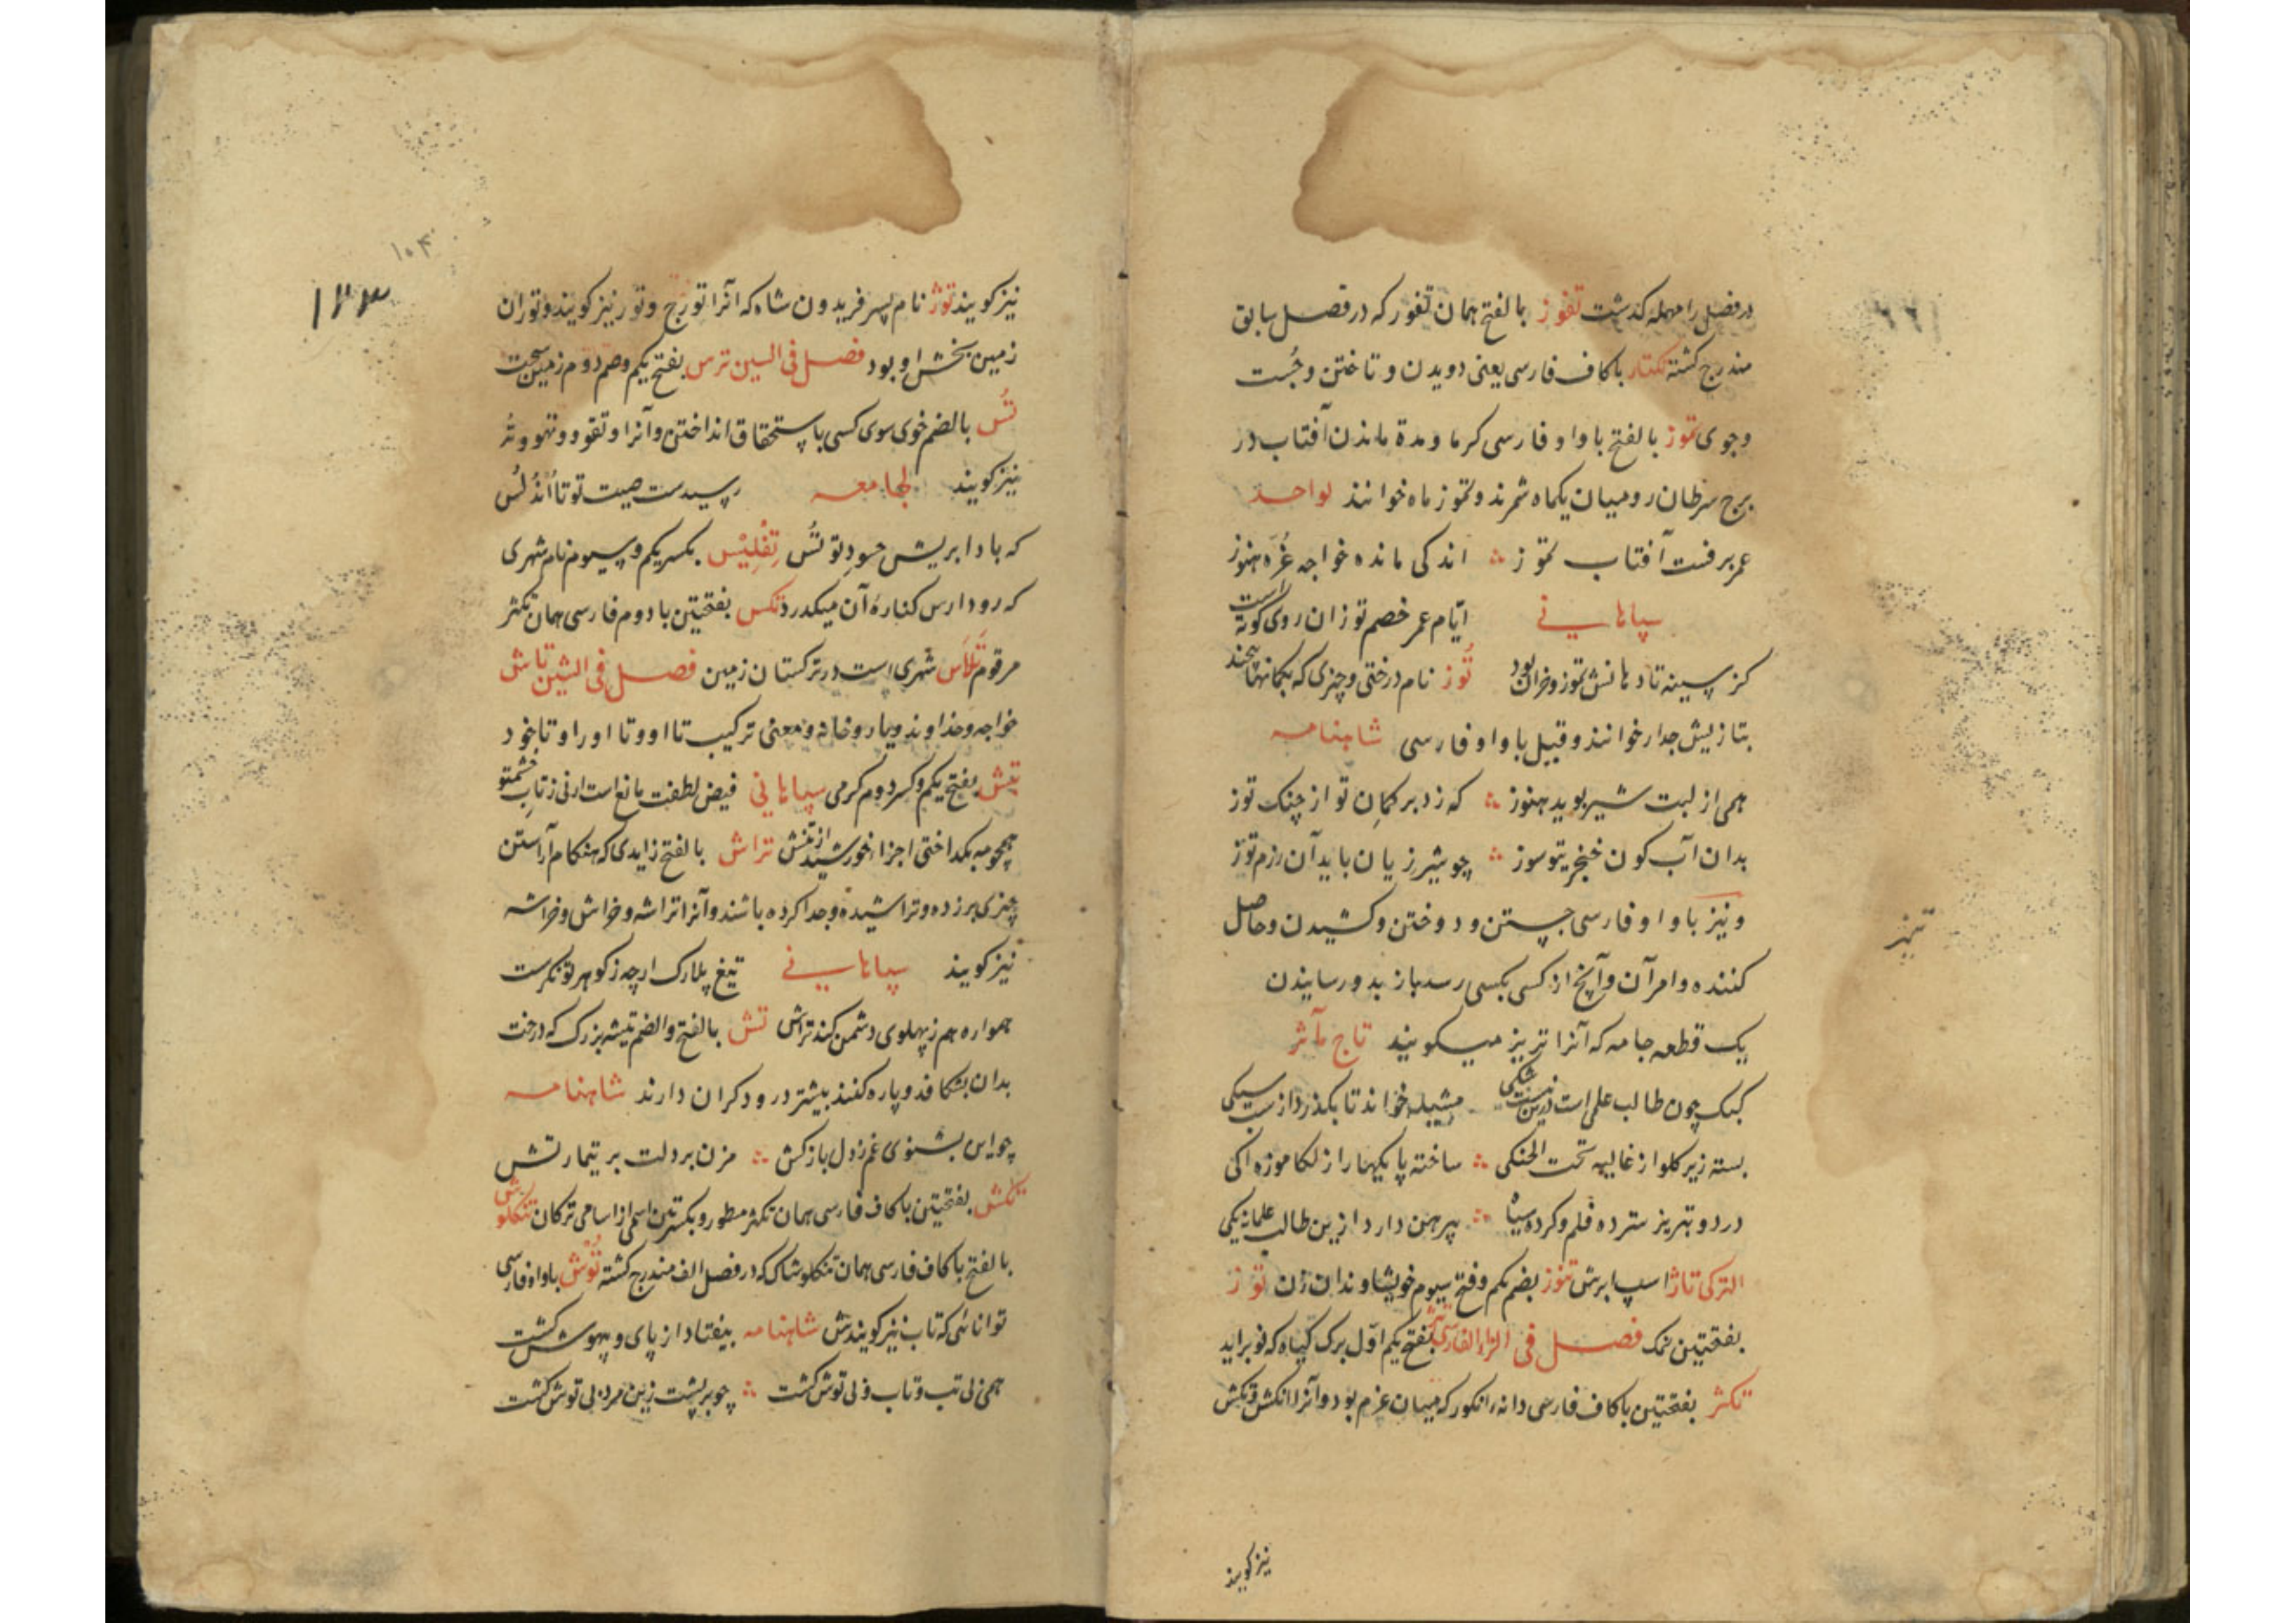 در فصل را مهمله کذشت تفوز بالفتح همان تفور که در فصل سابق
مندرج کشته تکتاز باکاف فارسی یعنی دویدن و تاختن و جُست
و جوی تموز بالفتح با واو فارسی کرما و مدة ماندن آفتاب در
برج سرطان رومیان یکماه شمرند و تموز ماه خوانند لواحد
عمر برفست آفتاب تموز اندکی مانده خواجه غُرّه هنوز
سپاهانی ایّام عمر خصم تو زان روی کوته است
کز سینه تا دهانش تموز و خزان بود تُوز نام درختی و چیزی که بکمانها پیچند
بتازیش جدار خوانند و قیل با واو فارسی شاهنامه
همی از لبت شیر بوید هنوز که زد بر کمان تو از چنک توز
بدان آب کون خنجر نیوسوز چو شیر ژیان باید آن رزم توز
و نیز با واو فارسی جستن و دوختن و کشیدن و حاصل
کننده و امر آن و آنچ از کسی بکسی رسد باز بدو رسانیدن
یک قطعه جامه که آنرا تریز میکویند تاج مآثر
کبک چون طالب علم است درین نیست شکی مشیله خواند تا بکذرد از شب سیکی
بسته زیر کلو از غالیه تحت الحنکی ساخته پایکهارا ز لکا موزه اکی
در دو تیریز سترده قلم و کرده سیاه پیرهن دارد ازین طالب علمانه یکی
الترکی تاز اسپ ابرش تنوز بضم یکم و فتح سیوم خویشاوندان زن توز
بفتحتین نمک فصل فی الزاء الفارسی بفتح یکم اوّل برک کیاه که نو براید
تکژ بفتحتین باکاف فارسی دانه انکور که میان غژم بود و آنرا تکش و تکس
نیز کویند
تیریز
نیز کویند توژ نام پسر فریدون شاه که آنرا تورج و تور نیز کویند و توران
زمین بخش او بود فصل فی السین ترس بفتح یکم و ضم دوم زمین سخت
تُس بالضم خوی سوی کسی باستحقاق انداختن و آنرا و تفو و تهو و تُه
نیز کویند لجامعه رسیدست صیت تو تا اُندُلُس
که بادا بریش حسودِ تو تُس تِفلِیْس بکسر یکم و سیوم نام شهری
که رود ارس کنارهٔ آن میکدرد تکس بفتحتین با دوم فارسی همان تکژ
مرقوم تَلَاس شهری است در ترکستان زمین فصل فی الشین تاش
خواجه و خداوند و یار و خانه و معنی ترکیب تا او و تا اورا و تا خود
تبش بفتح یکم و کسر دوم کرمی سپاهانی فیض لطفت مانع است ارنی ز تاب خشم تو
همچو مه بکداختی اجزاء خورشید از تبش تراش بالفتح زایدی که هنکام آراستن
چیزی برزده و تراشیده و جدا کرده باشند و آنرا تراشه و خراش و خراشه
نیز کویند سپاهانی تیغ پلارک ارچه ز کوهر توانکرست
همواره هم ز پهلوی دشمن کند تراش تش بالفتح و الضم تیشه بزرک که درخت
بدان بشکافد و پاره کنند بیشتر درودکران دارند شاهنامه
چو این بشنوی غم ز دل باز کش مزن بر دلت بر تیمار تش
تکش بفتحتین باکاف فارسی همان تکژ مطور و بکسرتین اسمی از اسامی ترکان تنکلوش
بالفتح باکاف فارسی همان تنکلوشاک که در فصل الف مندرج کشته تُوْش با واو فارسی
توانائی که تاب نیز کویندش شاهنامه بیفتاد از پای و بیهوش کشت
همی بی تب و تاب و بی توش کشت چو بر پشت زین مرد بی توش کشت
۱۰۴
۱۲۳